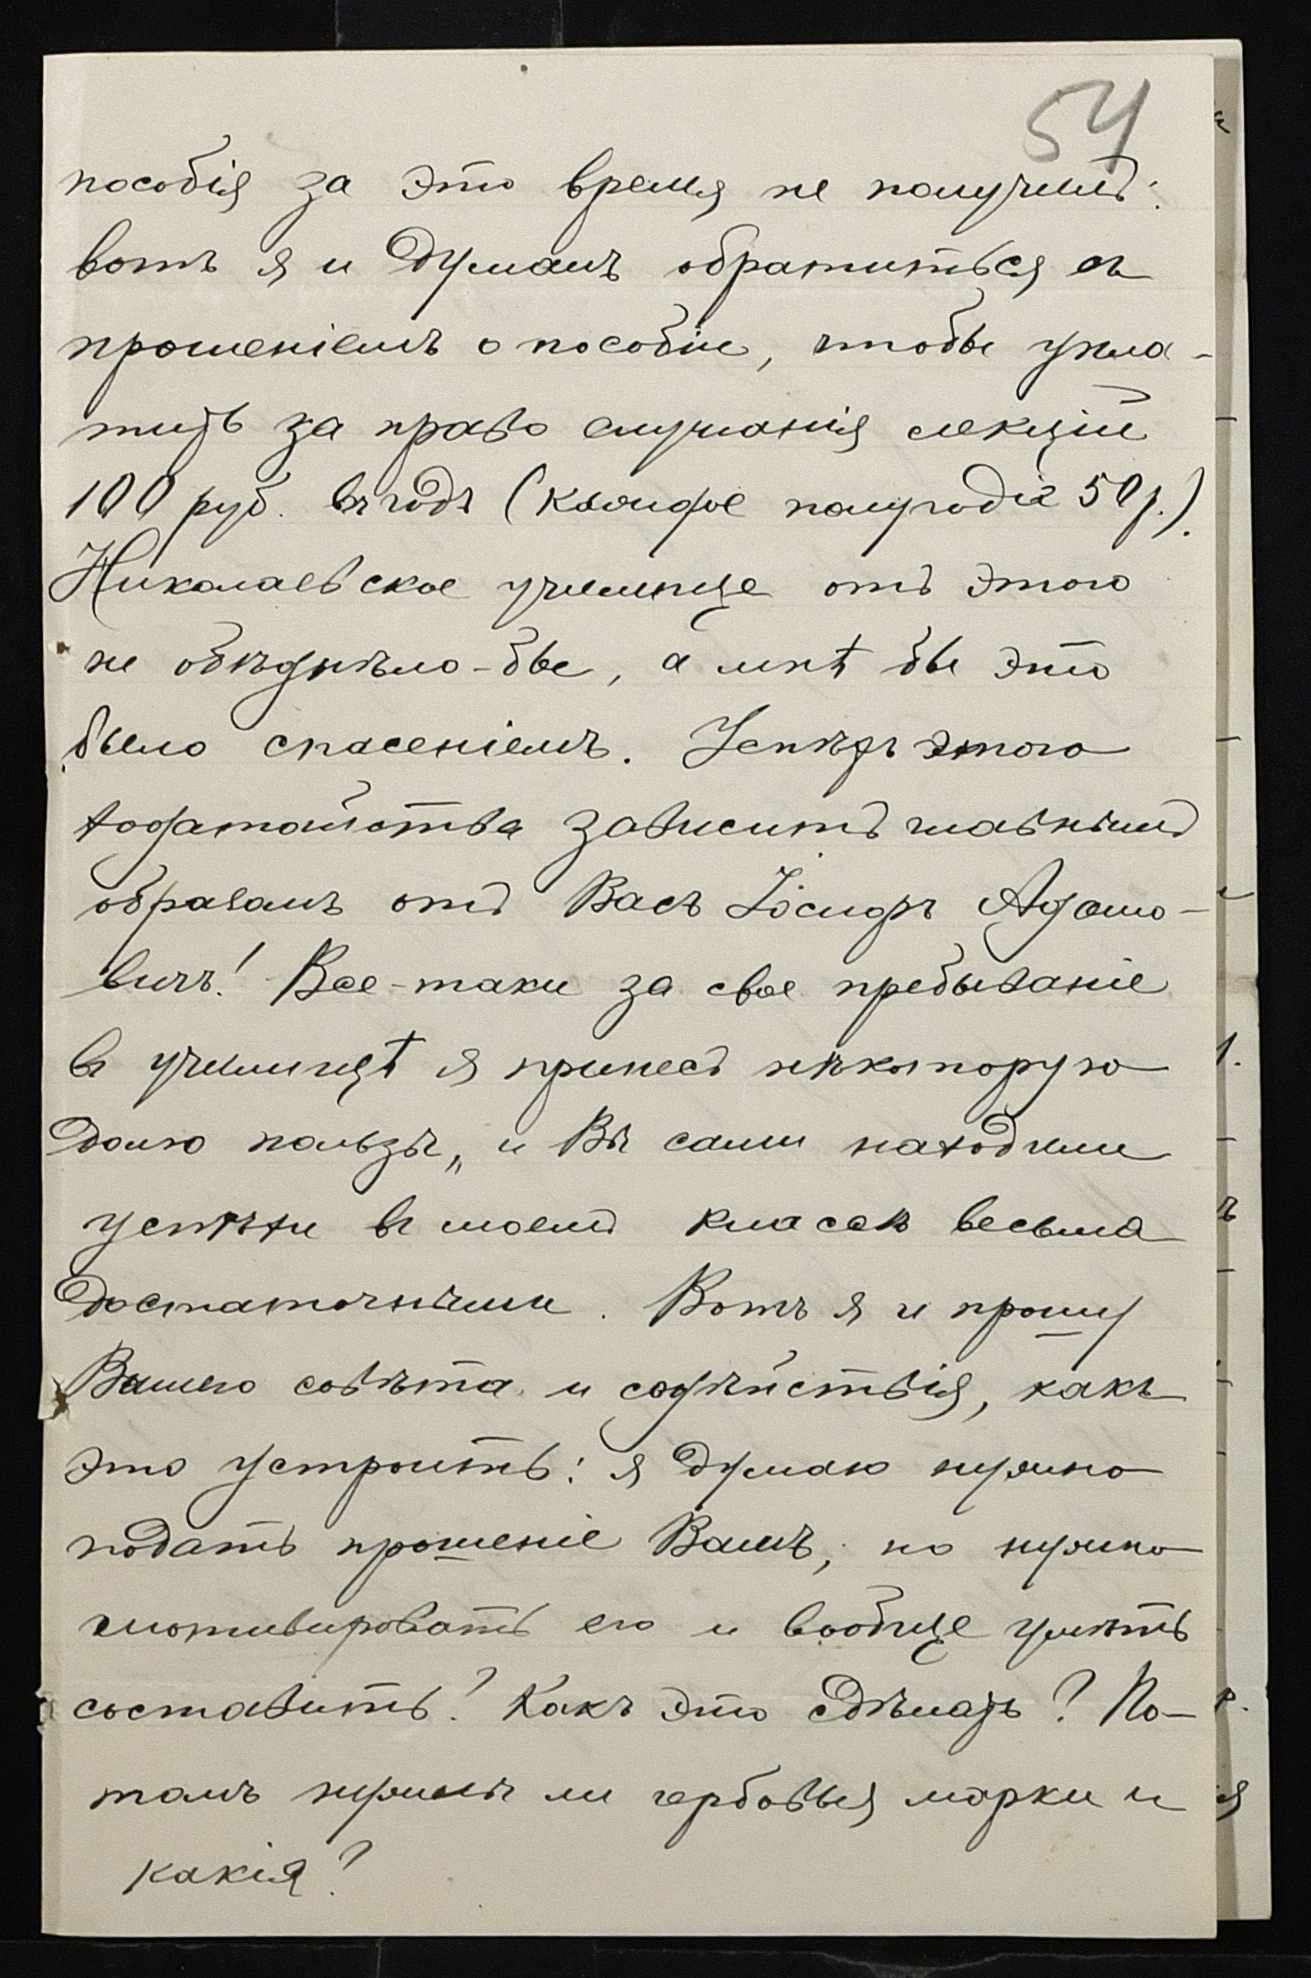 54
пособія за это время не получилъ:
вотъ я и думалъ обратиться съ
прошеніемъ о пособіи, чтобы упла-
тить за право слушанія лекцій
100 руб. въ годъ (каждое полугодіе 50 р.).
Николаевское училище отъ этого
не обѣднѣло-бы, а мнѣ бы это
было спасеніемъ. Успѣхъ этого
ходатайства зависитъ главнымъ
образомъ отъ Васъ Іосифъ Адамо-
вичъ! Все-таки за свое пребываніе
въ училищѣ я принесъ нѣкоторую
долю пользы, и Вы сами находили
успѣхи въ моемъ классѣ весьма
достаточными. Вотъ я и прошу
Вашего совѣта и содѣйствія, какъ
это устроить: я думаю нужно
подать прошеніе Вамъ, но нужно
мотивировать его и вообще умѣть
составить? Какъ это сдѣлать? По-
томъ нужны ли гербовыя марки и
какія?